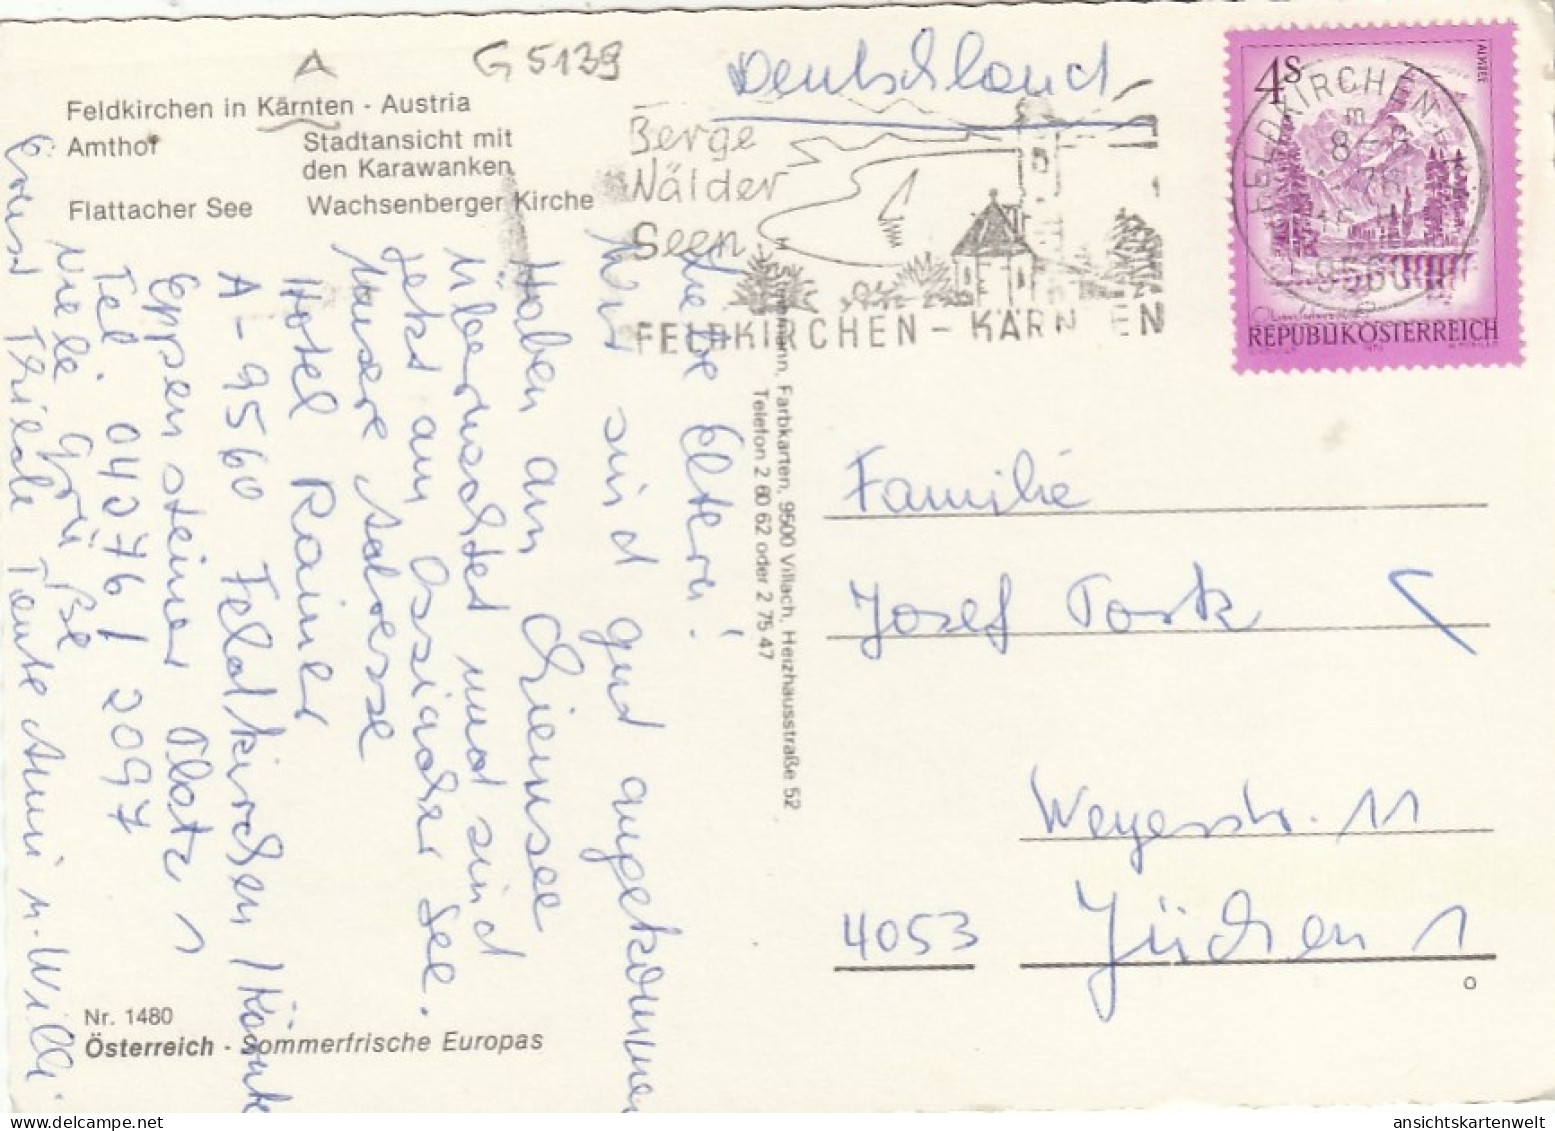 G 5139
Feldkirchen in Kärnten - Austria
Amthof
Stadtansicht mit
den Karawanken
Flattacher See
Wachsenberger Kirche
Deutschland
Berge
Wälder
Seen
FELDKIRCHEN - KÄRNTEN
4S
ALMSEE
REPUBLIK ÖSTERREICH
FELDKIRCHEN
9560
Liebe Eltern!
Wir sind gut angekommen
Haben am Chiemsee
übernachtet und sind
jetzt am Ossiacher See.
Unsere Adresse
Hotel Rainer
A-9560 Feldkirchen/Kärnten
Eppensteiner Platz 1
Tel. 04276/2097
Viele Grüße
Ernst Thilde Tante Anni u. Willi.
Farbkarten, 9500 Villach, Heizhausstraße 52
Telefon 2 60 62 oder 2 75 47
Familie
Josef Pork
Weyerstr. 11
4053 Jüchen 1
Nr. 1480
Österreich - Sommerfrische Europas
ansichtskartenwelt